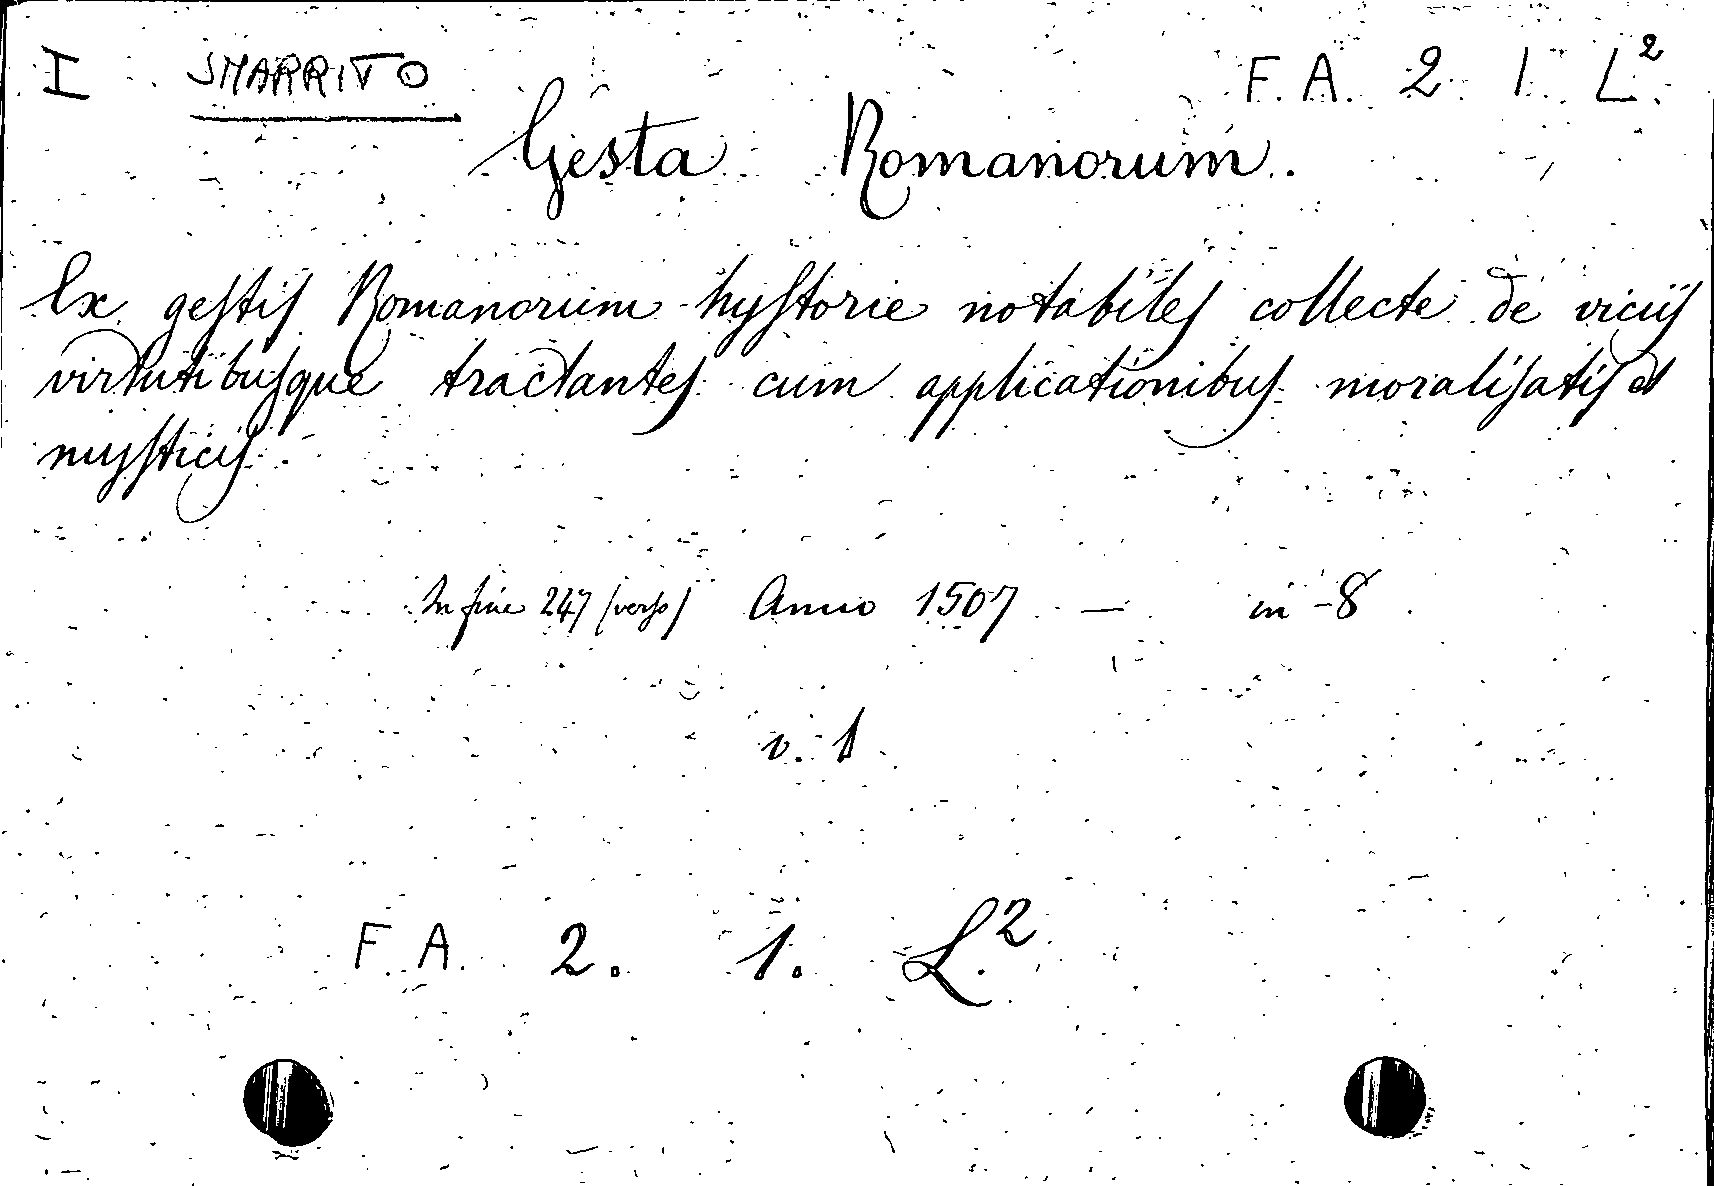 I SMARRITO F. A. 2. 1. L².
Gesta Romanorum.
Ex gestis Romanorum hystorie notabiles collecte de viciis
virtutibusque tractantes cum applicationibus moralisatis et
mysticis
In fine 247 (verso) Anno 1507 — in-8
v. 1
F. A. 2. 1. L.²